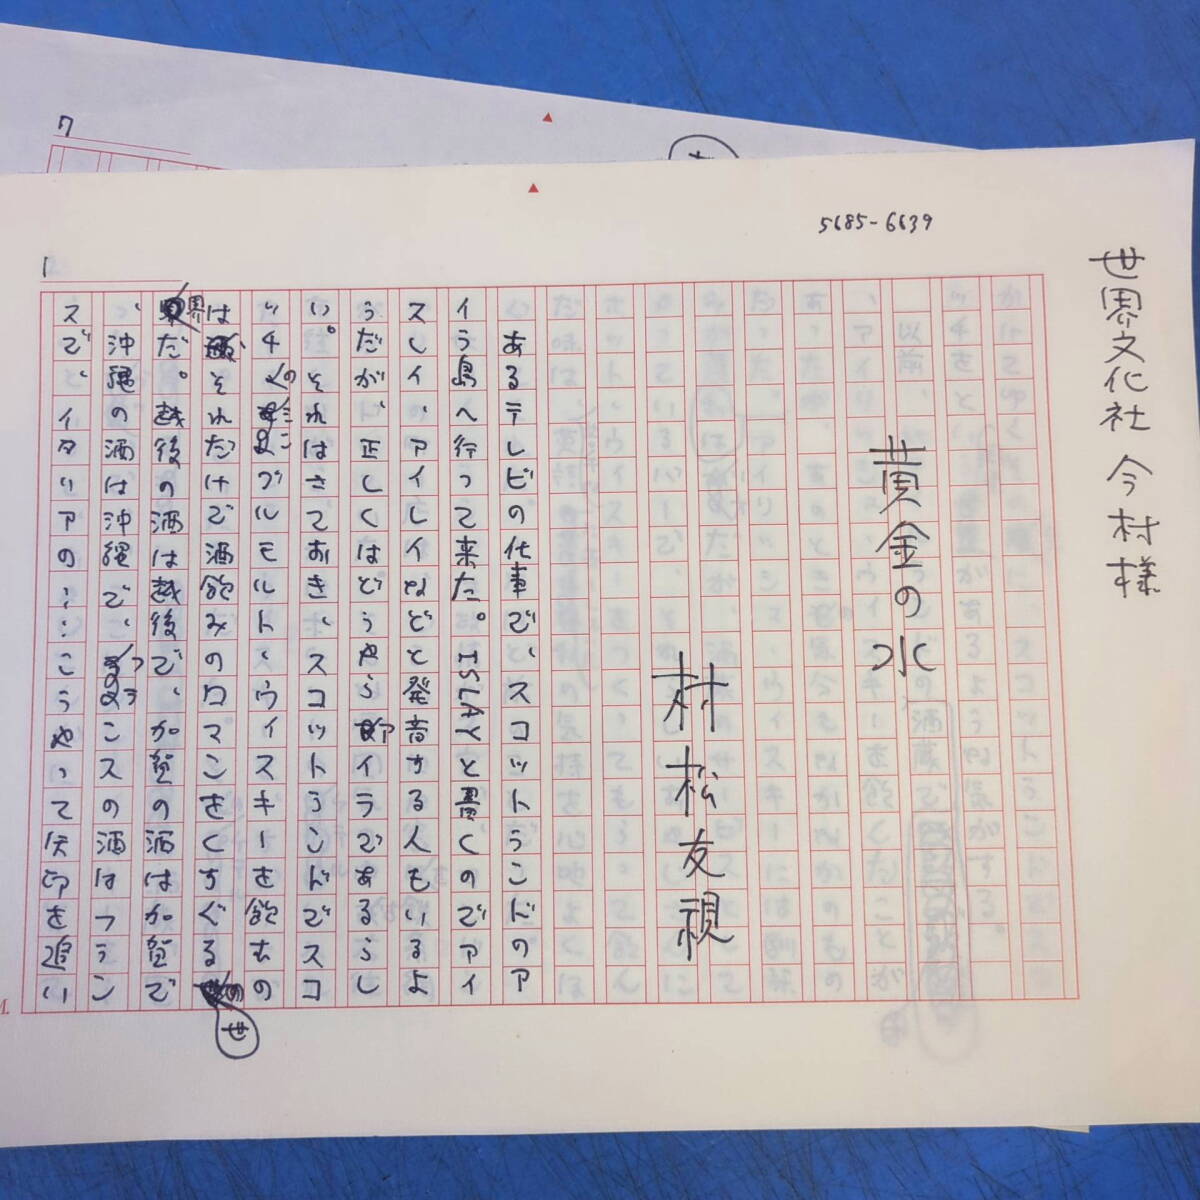 7
5685-6639
世界文化社 今村様
1
黄金の水
村松友視
あるテレビの仕事で、スコットランドのア
イラ島へ行って来た。ISLAYと書くのでアイ
スレイ、アイレイなどと発音する人もいるよ
うだが、正しくはどうやらアイラであるらし
い。それはさておき、スコットランドでスコ
ッチのシングルモルトウイスキーを飲むの
はそれだけで酒飲みのロマンをくすぐる世
界だ。越後の酒は越後で、加賀の酒は加賀で
、沖縄の酒は沖縄で、フランスの酒はフラン
スで、イタリアの……こうやって矢印を追い